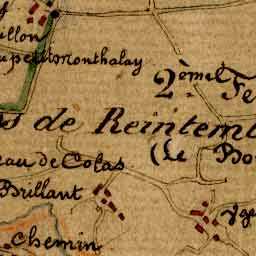 illon
upetitmonthalay
2ème Fe
s de Reintem
eau de Colas
(Le Bo
Brillant
Chemin